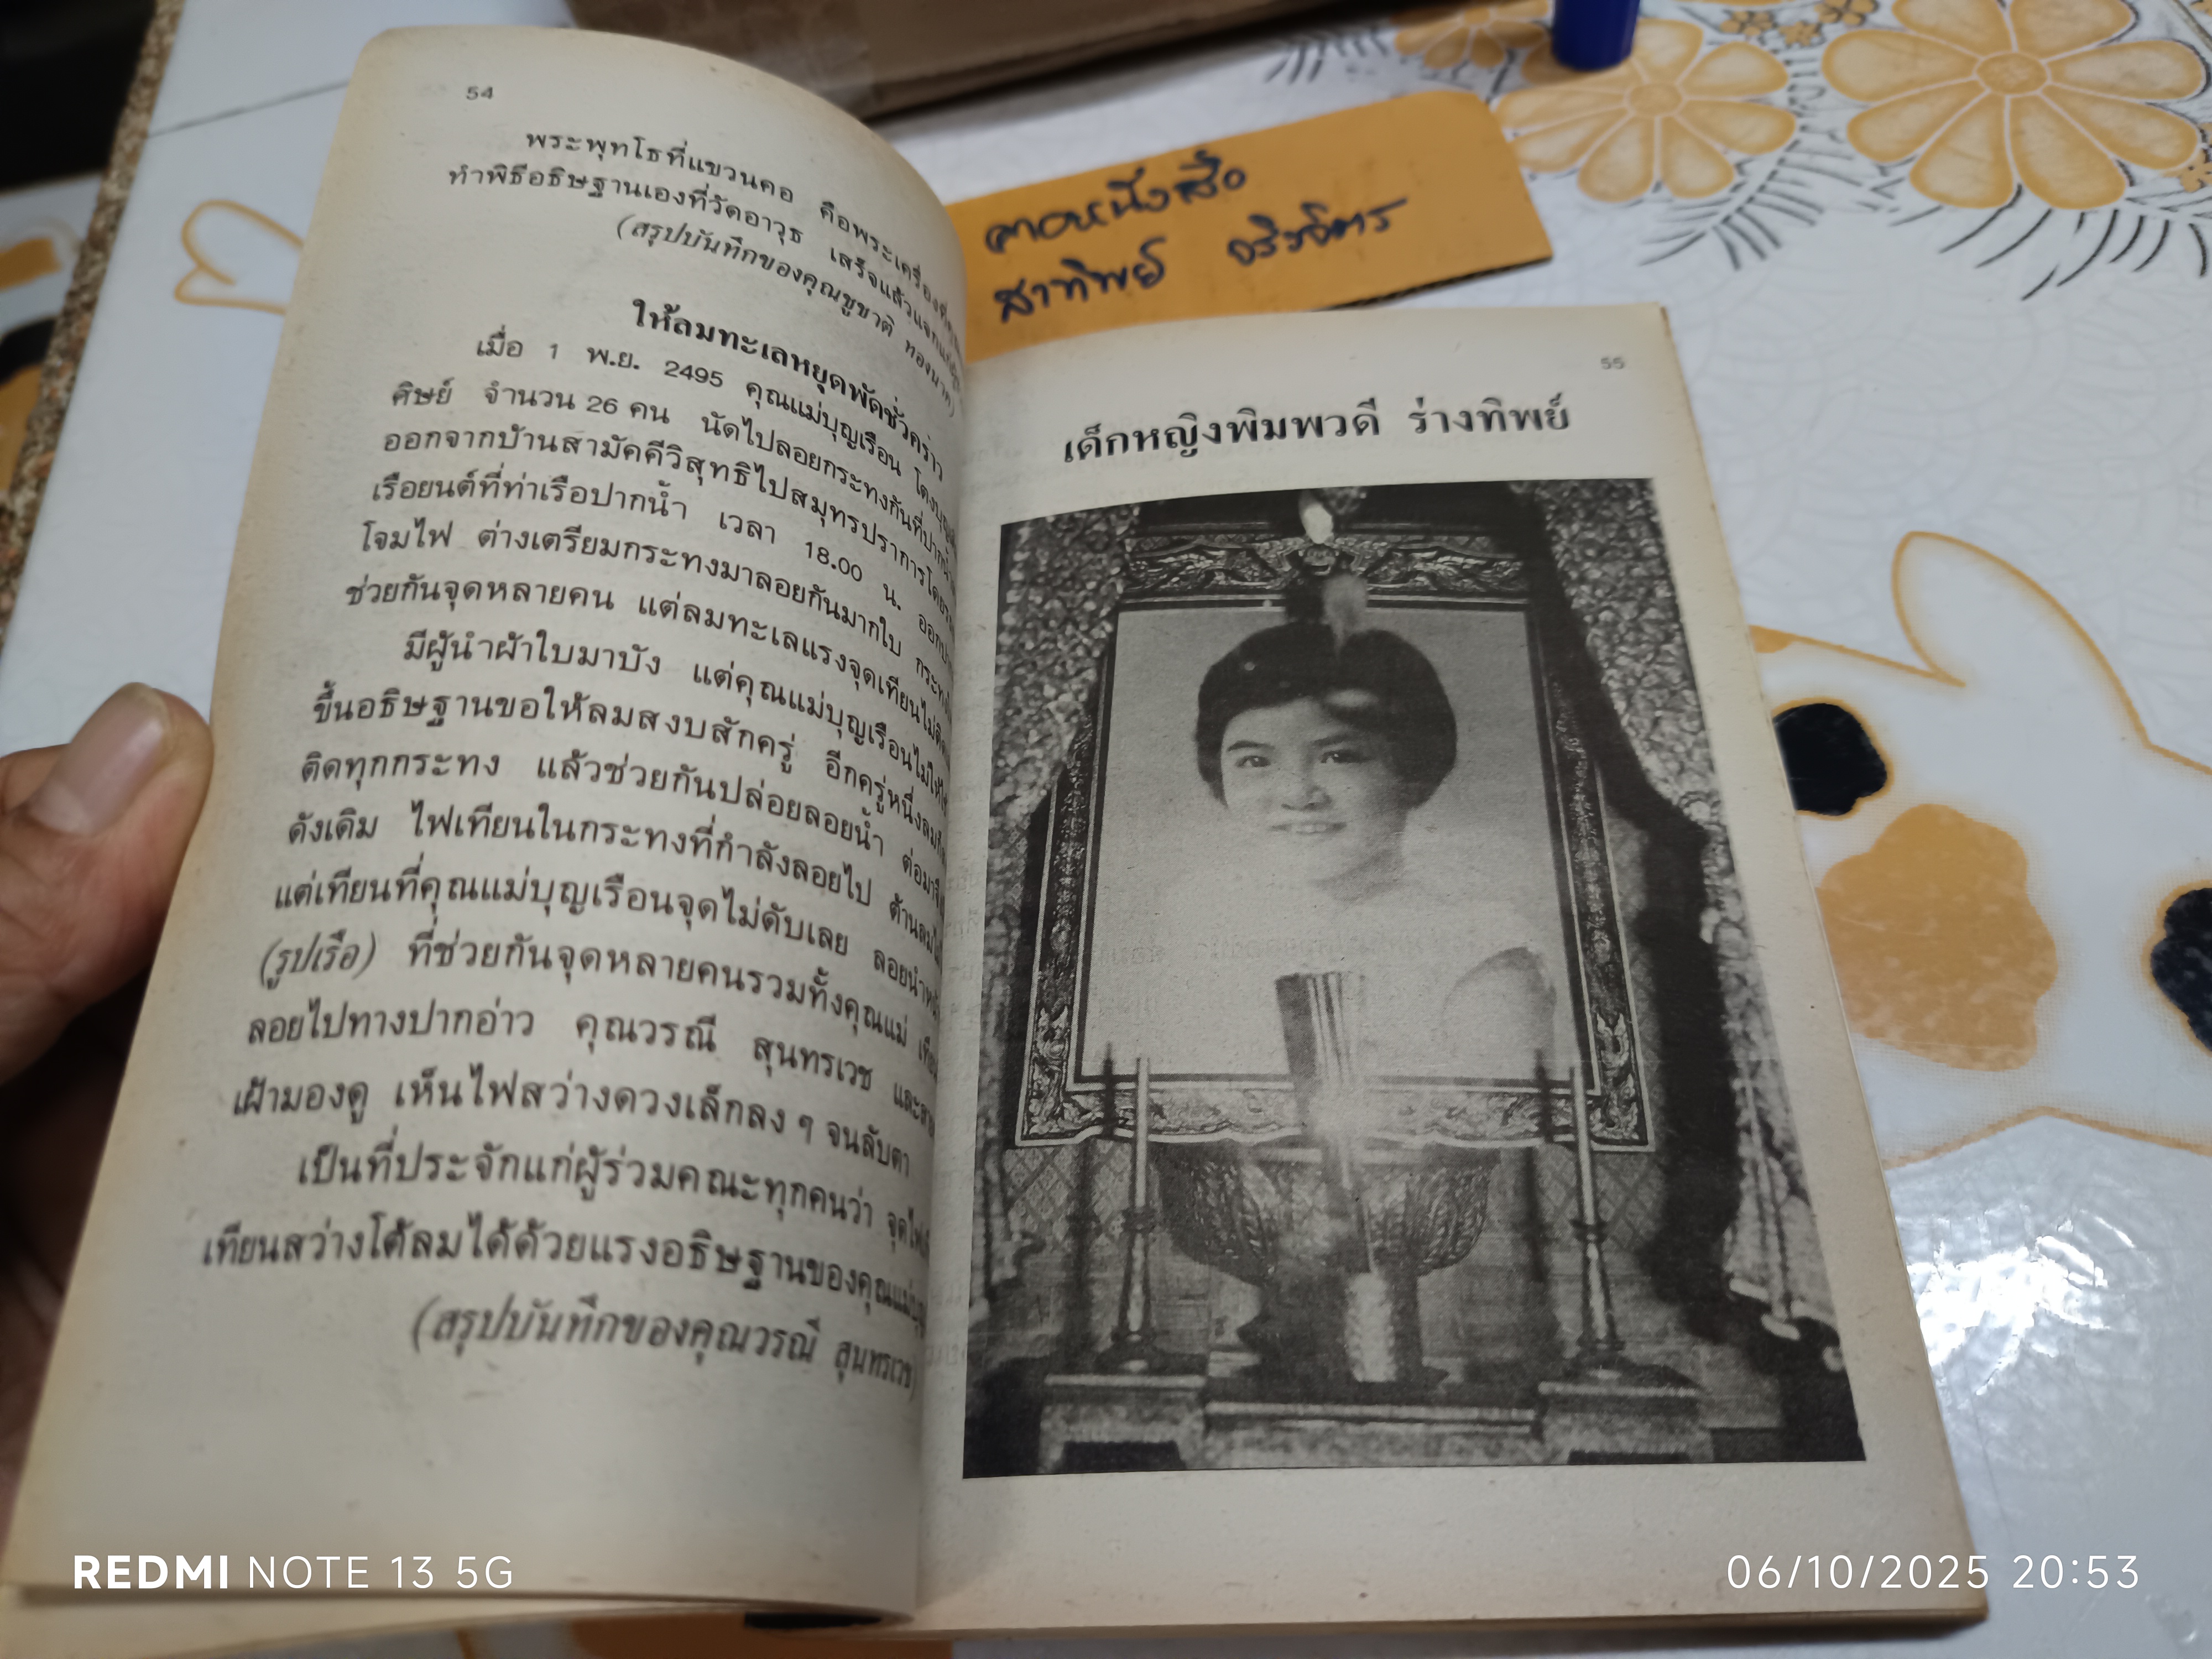 54
พระพุทโธที่แขวนคอ คือพระเครื่อง
ทำพิธีอธิษฐานเองที่วัดอาวุธ เสร็จแล้วแจก
(สรุปบันทึกของคุณชูชาติ ทองนาค)
ให้ลมทะเลหยุดพัดชั่วคราว
เมื่อ 1 พ.ย. 2495 คุณแม่บุญเรือน
ศิษย์ จำนวน 26 คน นัดไปลอยกระทงกันที่ปากน้ำ
ออกจากบ้านสามัคคีวิสุทธิไปสมุทรปราการโดย
เรือยนต์ที่ท่าเรือปากน้ำ เวลา 18.00 น.
โจมไฟ ต่างเตรียมกระทงมาลอยกันมากใบ
ช่วยกันจุดหลายคน แต่ลมทะเลแรงจุดเทียนไม่ติด
มีผู้นำผ้าใบมาบัง แต่คุณแม่บุญเรือนไม่ให้ใช้
ขึ้นอธิษฐานขอให้ลมสงบสักครู่ อีกครู่หนึ่งลม
ติดทุกกระทง แล้วช่วยกันปล่อยลอยน้ำ ต่อมา
ดังเดิม ไฟเทียนในกระทงที่กำลังลอยไป ต้านลม
แต่เทียนที่คุณแม่บุญเรือนจุดไม่ดับเลย
(รูปเรือ) ที่ช่วยกันจุดหลายคนรวมทั้งคุณแม่
ลอยไปทางปากอ่าว คุณวรณี สุนทรเวช และ
เฝ้ามองดู เห็นไฟสว่างดวงเล็กลง ๆ จนลับตา
เป็นที่ประจักแก่ผู้ร่วมคณะทุกคนว่า
เทียนสว่างโต้ลมได้ด้วยแรงอธิษฐานของคุณแม่
(สรุปบันทึกของคุณวรณี สุนทรเวช)
สาทิพย์
55
เด็กหญิงพิมพวดี ร่างทิพย์
REDMI NOTE 13 5G
06/10/2025 20:53